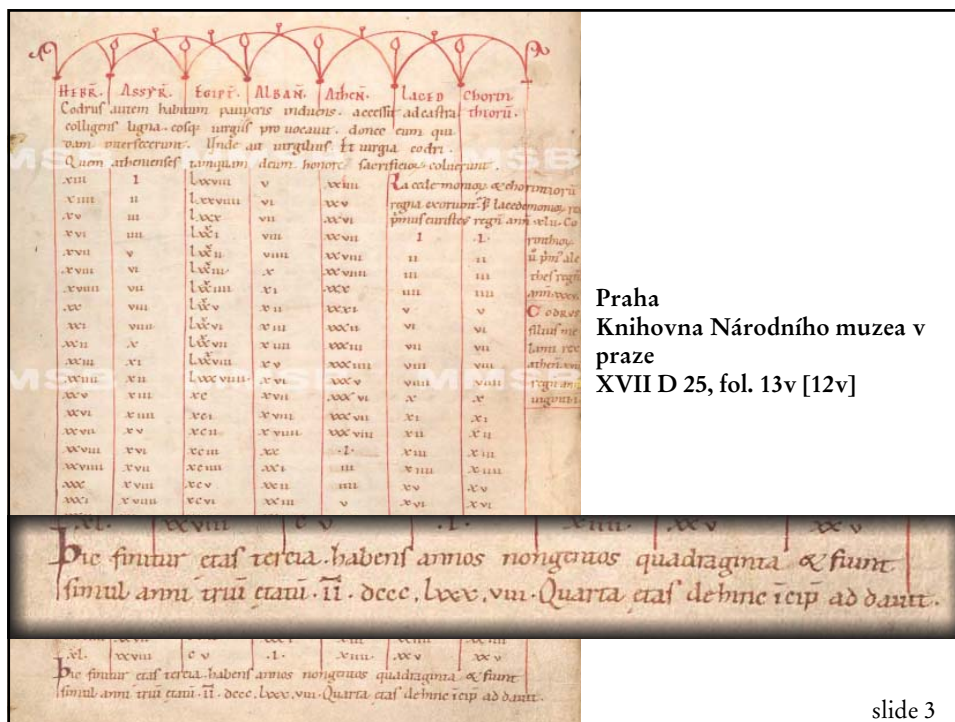 HEBR̄. ASSYR̄. EGIPT̄. ALBAN̄. AthEN̄. LACED Chorin
thiorū.
Codrus autem habitum pauperis induens. accessit ad castra
colligens ligna. eosq; uirgis prouocauit. donec eum qui
dam interfecerunt. Unde ait uirgilius. Et iurgia codri.
Quem athenienses tanquam deum honore sacrificioq; coluerunt.
xiii I lxxviii v xxiiii
xiiii ii lxxviiii vi xxv
xv iii lxxx vii xxvi
xvi iiii lxxxi viii xxvii I .I.
xvii v lxxxii viiii xxviii ii ii
xviii vi lxxxiii x xxviiii iii iii
xviiii vii lxxxiiii xi xxx iiii iiii
xx viii lxxxv xii xxxi v v
xxi viiii lxxxvi xiii xxxii vi vi
xxii x lxxxvii xiiii xxxiii vii vii
xxiii xi lxxxviii xv xxxiiii viii viii
xxiiii xii lxxxviiii xvi xxxv viiii viiii
xxv xiii xc xvii xxxvi x x
xxvi xiiii xci xviii xxxvii xi xi
xxvii xv xcii xviiii xxxviii xii xii
xxviii xvi xciii xx .I. xiii xiii
xxviiii xvii xciiii xxi iii xiiii xiiii
xxx xviii xcv xxii iiii xv xv
xxxi xviiii xcvi xxiii v xvi xvi
Lacedemonioꝝ & chorintiorū
regna exorunt᷑
CODRUS
Praha
Knihovna Národního muzea v
praze
XVII D 25, fol. 13v [12v]
.xl. xxviii c v .I. xiiii. xxv xxv
hic finitur etas tercia. habens annos nongentos quadraginta & fiunt
simul anni triū etatū. īī. dccc. lxxx. viii. Quarta etas dehinc īcip̄ ad dauit.
.xl. xxviii c v .I. xiiii. xxv xxv
hic finitur etas tercia. habens annos nongentos quadraginta & fiunt
simul anni triū etatū. īī. dccc. lxxx. viii. Quarta etas dehinc īcip̄ ad dauit.
slide 3